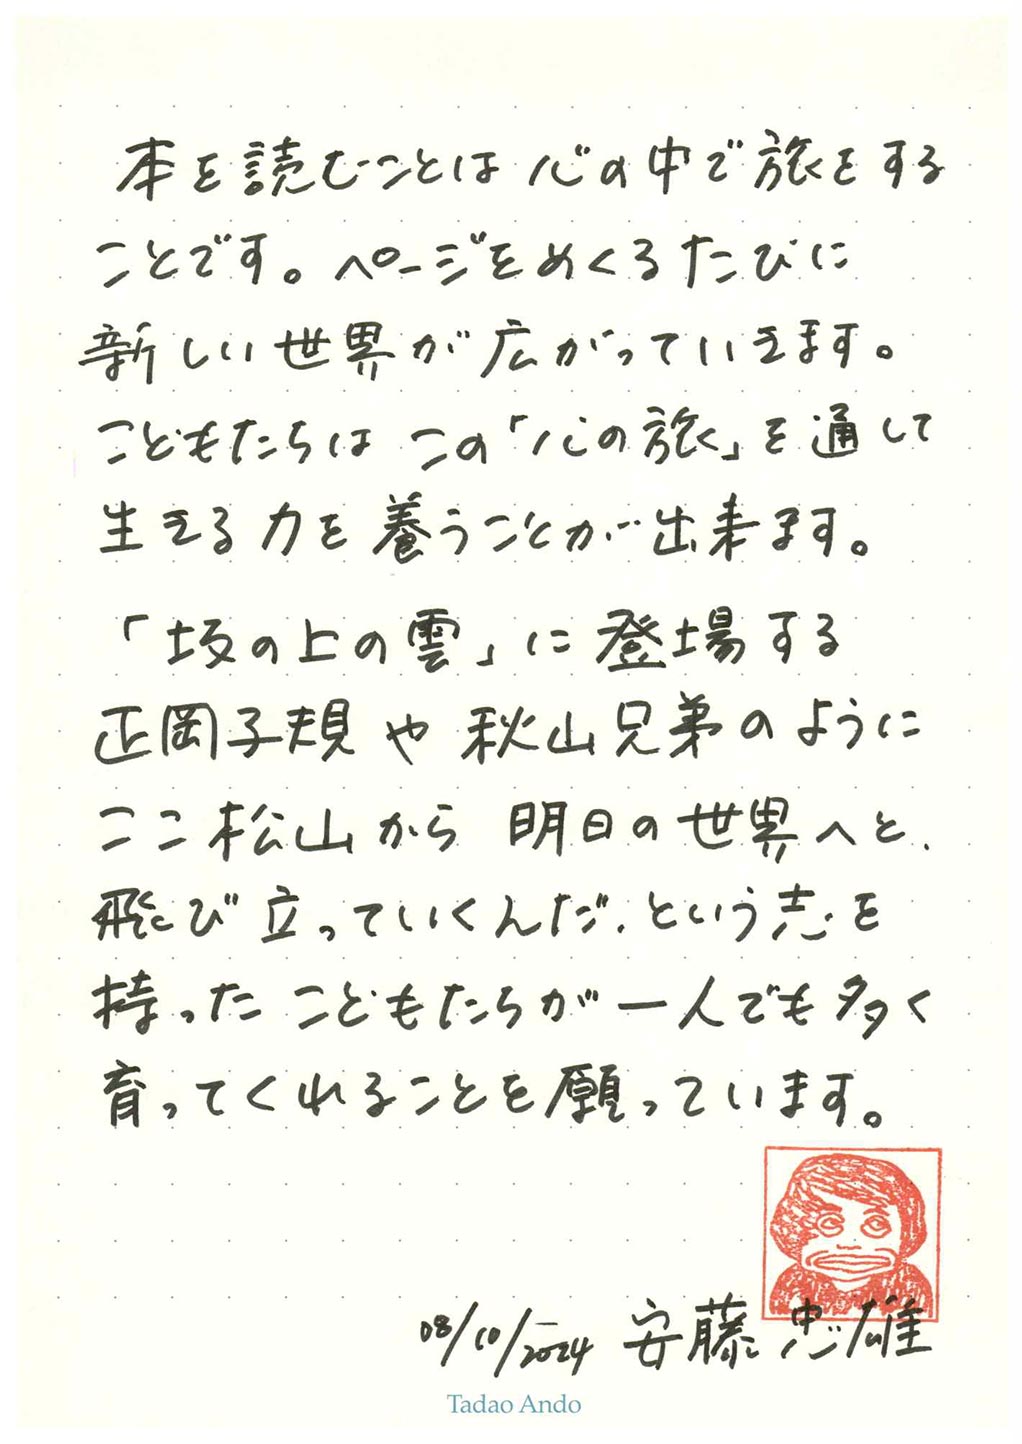 本を読むことは心の中で旅をする
ことです。ページをめくるたびに
新しい世界が広がっていきます。
こどもたちはこの「心の旅」を通して
生きる力を養うことが出来ます。
「坂の上の雲」に登場する
正岡子規や秋山兄弟のように
ここ松山から明日の世界へと、
飛び立っていくんだ、という志を
持ったこどもたちが一人でも多く
育ってくれることを願っています。
08/10/2024 安藤忠雄
Tadao Ando